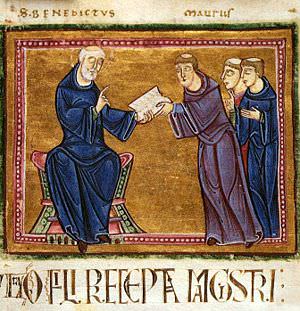 S. BENEDICTVS MAVRVS
O FILI PRECEPTA MAGISTRI: